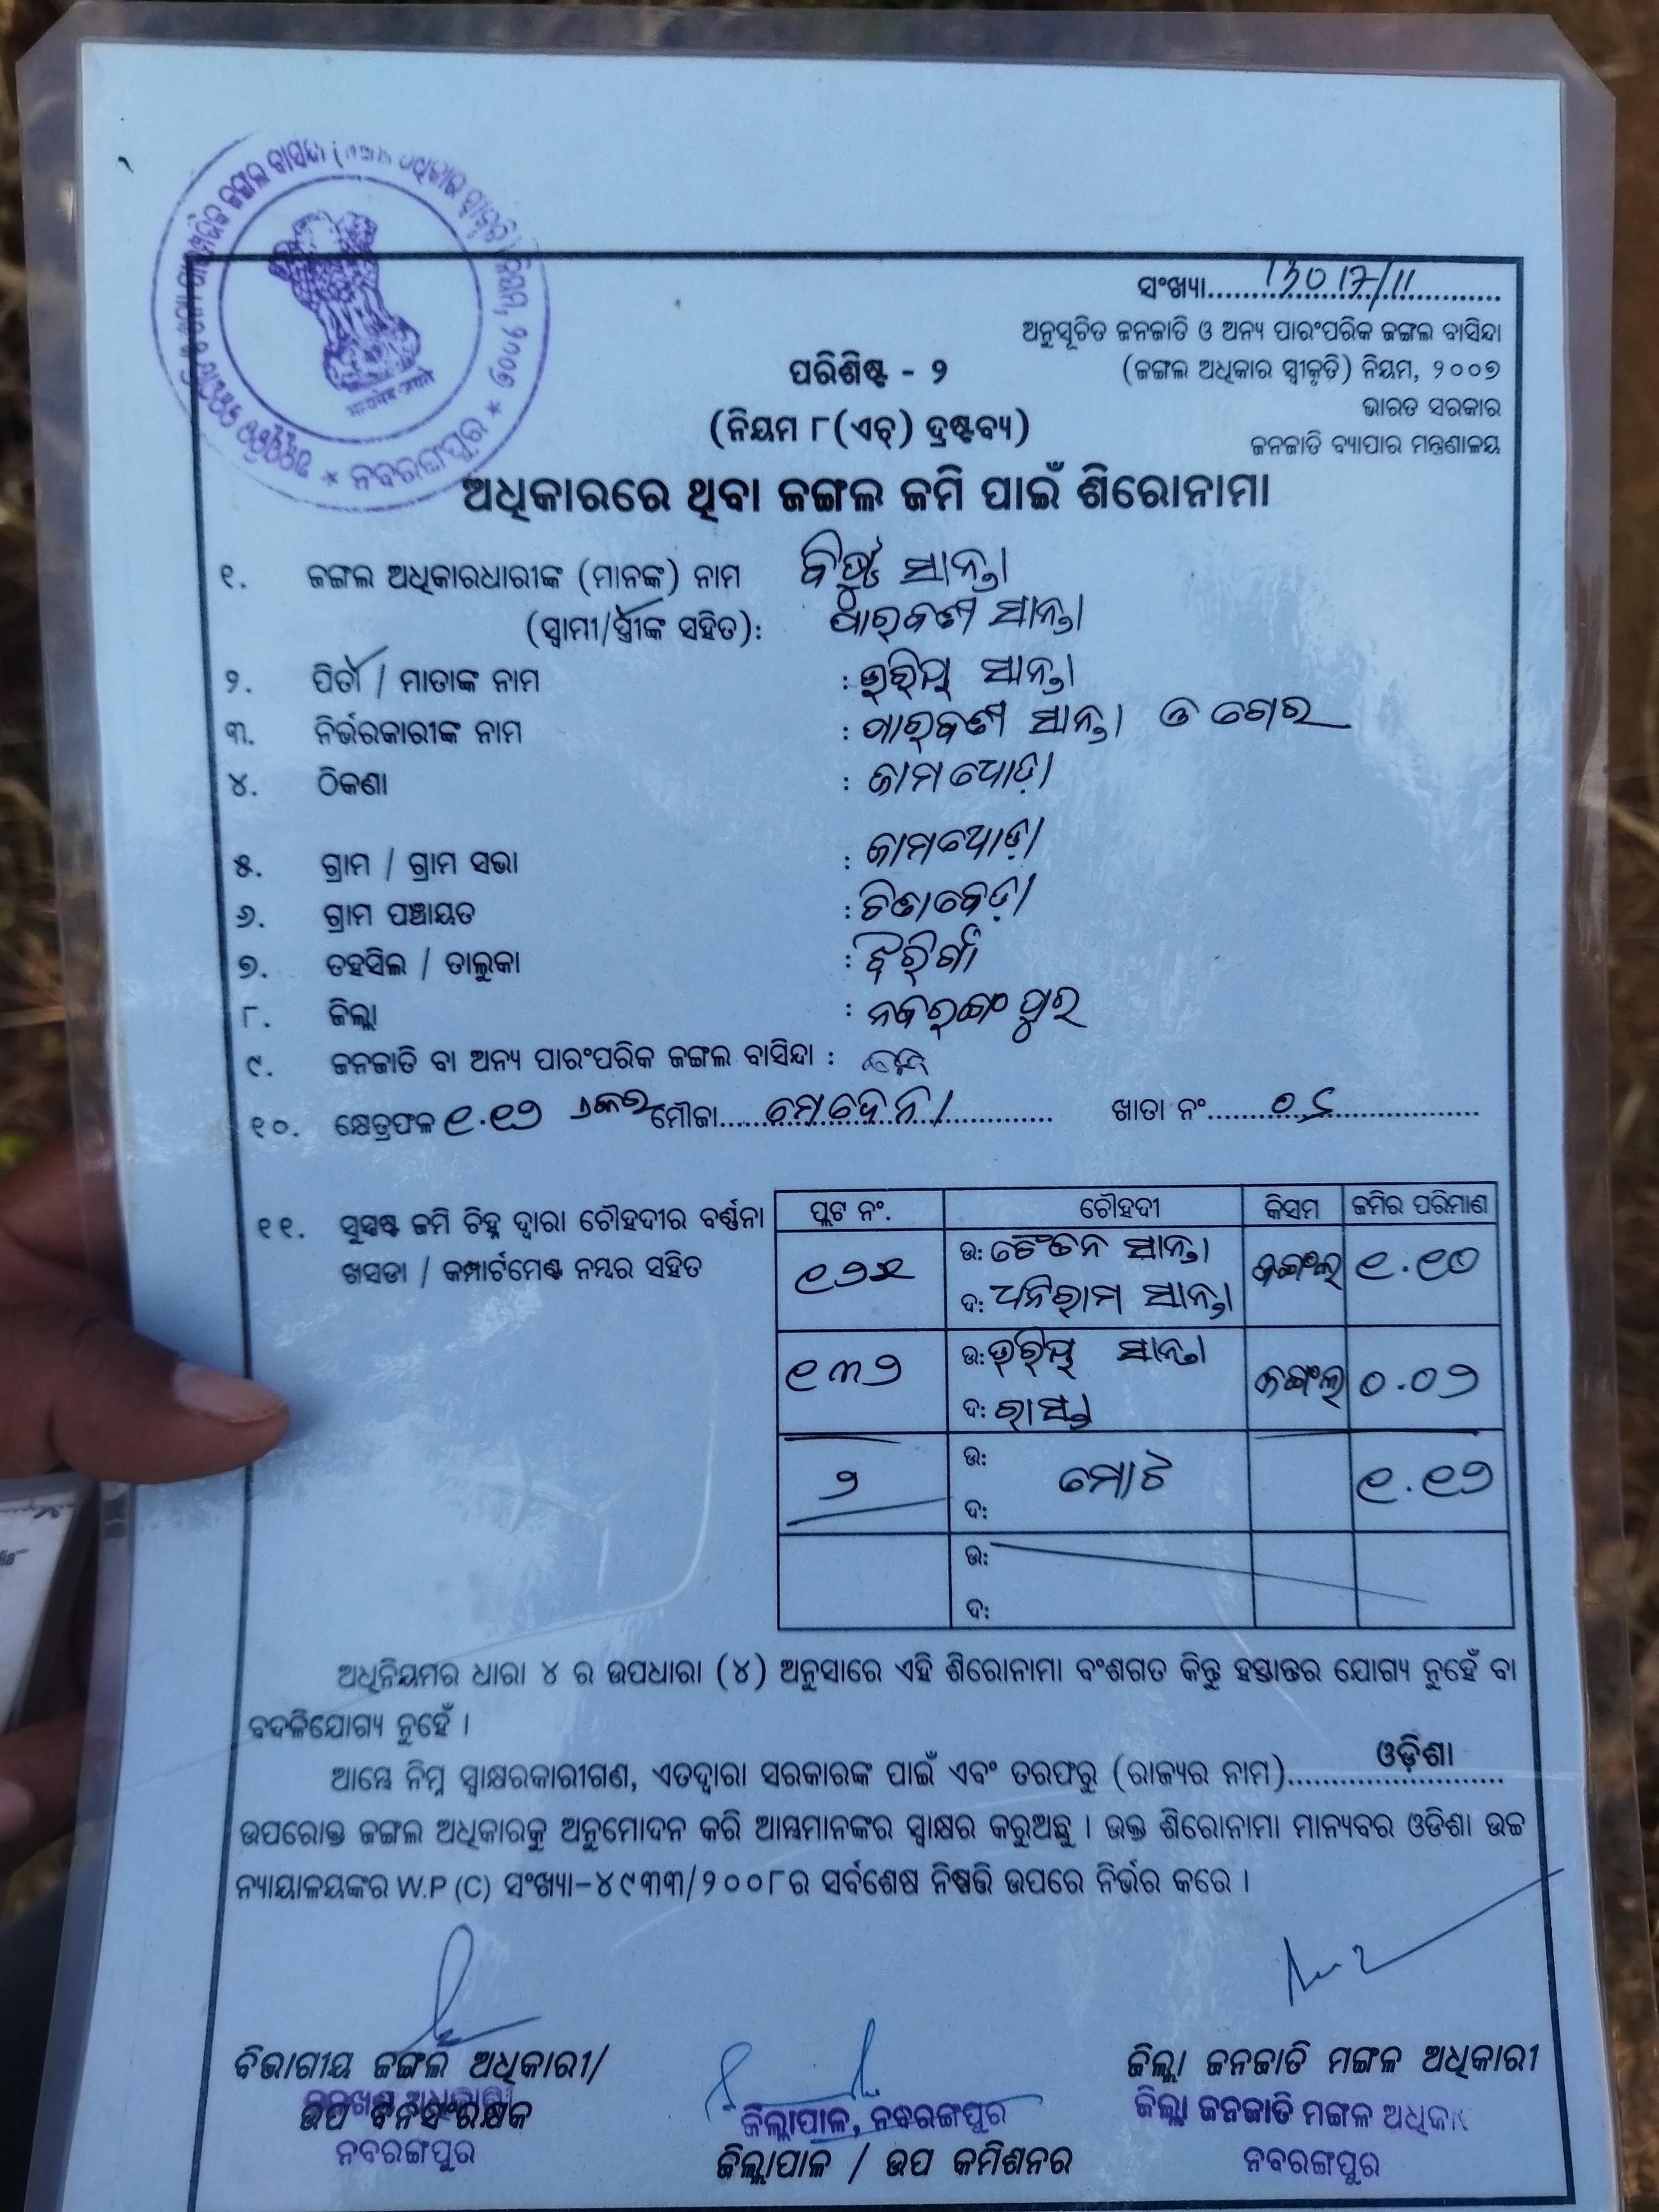 ସଂଖ୍ୟା 13017/11
ଅନୁସୂଚିତ ଜନଜାତି ଓ ଅନ୍ୟ ପାରଂପରିକ ଜଙ୍ଗଲ ବାସିନ୍ଦା
(ଜଙ୍ଗଲ ଅଧିକାର ସ୍ୱୀକୃତି) ନିୟମ, ୨୦୦୭
ଭାରତ ସରକାର
ଜନଜାତି ବ୍ୟାପାର ମନ୍ତ୍ରଣାଳୟ
ପରିଶିଷ୍ଟ - ୨
(ନିୟମ ୮(ଏଚ୍) ଦ୍ରଷ୍ଟବ୍ୟ)
ନବରଙ୍ଗପୁର
ଅଧିକାରରେ ଥିବା ଜଙ୍ଗଲ ଜମି ପାଇଁ ଶିରୋନାମା
୧. ଜଙ୍ଗଲ ଅଧିକାରଧାରୀଙ୍କ (ମାନଙ୍କ) ନାମ ସାନ୍ତା
(ସ୍ୱାମୀ/ସ୍ତ୍ରୀଙ୍କ ସହିତ): ପାର୍ବତୀ ସାନ୍ତା
୨. ପିତା / ମାତାଙ୍କ ନାମ : ସାନ୍ତା
୩. ନିର୍ଭରକାରୀଙ୍କ ନାମ : ପାର୍ବତୀ ସାନ୍ତା ଓ
୪. ଠିକଣା : ଜାମଧୋଡ଼ା
୫. ଗ୍ରାମ / ଗ୍ରାମ ସଭା : ଜାମଧୋଡ଼ା
୬. ଗ୍ରାମ ପଞ୍ଚାୟତ : ଚିତାବେଡ଼ା
୭. ତହସିଲ / ତାଲୁକା : ଝରିଗାଁ
୮. ଜିଲ୍ଲା : ନବରଙ୍ଗପୁର
୯. ଜନଜାତି ବା ଅନ୍ୟ ପାରଂପରିକ ଜଙ୍ଗଲ ବାସିନ୍ଦା :
୧୦. କ୍ଷେତ୍ରଫଳ ୧.୧୨ ଏକର ମୌଜା ଖାତା ନଂ
୧୧. ସୁସ୍ପଷ୍ଟ ଜମି ଚିହ୍ନ ଦ୍ୱାରା ଚୌହଦୀର ବର୍ଣ୍ଣନା
ଖସଡା / କମ୍ପାର୍ଟମେଣ୍ଟ ନମ୍ବର ସହିତ
ପ୍ଲଟ ନଂ. ଚୌହଦୀ କିସମ ଜମିର ପରିମାଣ
ଉ: ଚୈତନ ସାନ୍ତା ଜଙ୍ଗଲ ୧.୧୦
ଦ: ଧନିରାମ ସାନ୍ତା
୧୩୨ ଉ: ସାନ୍ତା ଜଙ୍ଗଲ ୦.୦୨
ଦ: ରାସ୍ତା
୨ ଉ: ମୋଟ ୧.୧୨
ଦ:
ଉ:
ଦ:
ଅଧିନିୟମର ଧାରା ୪ ର ଉପଧାରା (୪) ଅନୁସାରେ ଏହି ଶିରୋନାମା ବଂଶଗତ କିନ୍ତୁ ହସ୍ତାନ୍ତର ଯୋଗ୍ୟ ନୁହେଁ ବା
ବଦଳିଯୋଗ୍ୟ ନୁହେଁ ।
ଆମ୍ଭେ ନିମ୍ନ ସ୍ୱାକ୍ଷରକାରୀଗଣ, ଏତଦ୍ୱାରା ସରକାରଙ୍କ ପାଇଁ ଏବଂ ତରଫରୁ (ରାଜ୍ୟର ନାମ) ଓଡ଼ିଶା
ଉପରୋକ୍ତ ଜଙ୍ଗଲ ଅଧିକାରକୁ ଅନୁମୋଦନ କରି ଆମ୍ଭମାନଙ୍କର ସ୍ୱାକ୍ଷର କରୁଅଛୁ । ଉକ୍ତ ଶିରୋନାମା ମାନ୍ୟବର ଓଡିଶା ଉଚ୍ଚ
ନ୍ୟାୟାଳୟଙ୍କର W.P (C) ସଂଖ୍ୟା-୪୯୩୩/୨୦୦୮ର ସର୍ବଶେଷ ନିଷ୍ପତ୍ତି ଉପରେ ନିର୍ଭର କରେ ।
ବିଭାଗୀୟ ଜଙ୍ଗଲ ଅଧିକାରୀ/
ଉପ ବନସଂରକ୍ଷକ
ନବରଙ୍ଗପୁର
ଜିଲ୍ଲାପାଳ, ନବରଙ୍ଗପୁର
ଜିଲ୍ଲାପାଳ / ଉପ କମିଶନର
ଜିଲ୍ଲା ଜନଜାତି ମଙ୍ଗଳ ଅଧିକାରୀ
ଜିଲ୍ଲା ଜନଜାତି ମଙ୍ଗଳ
ନବରଙ୍ଗପୁର